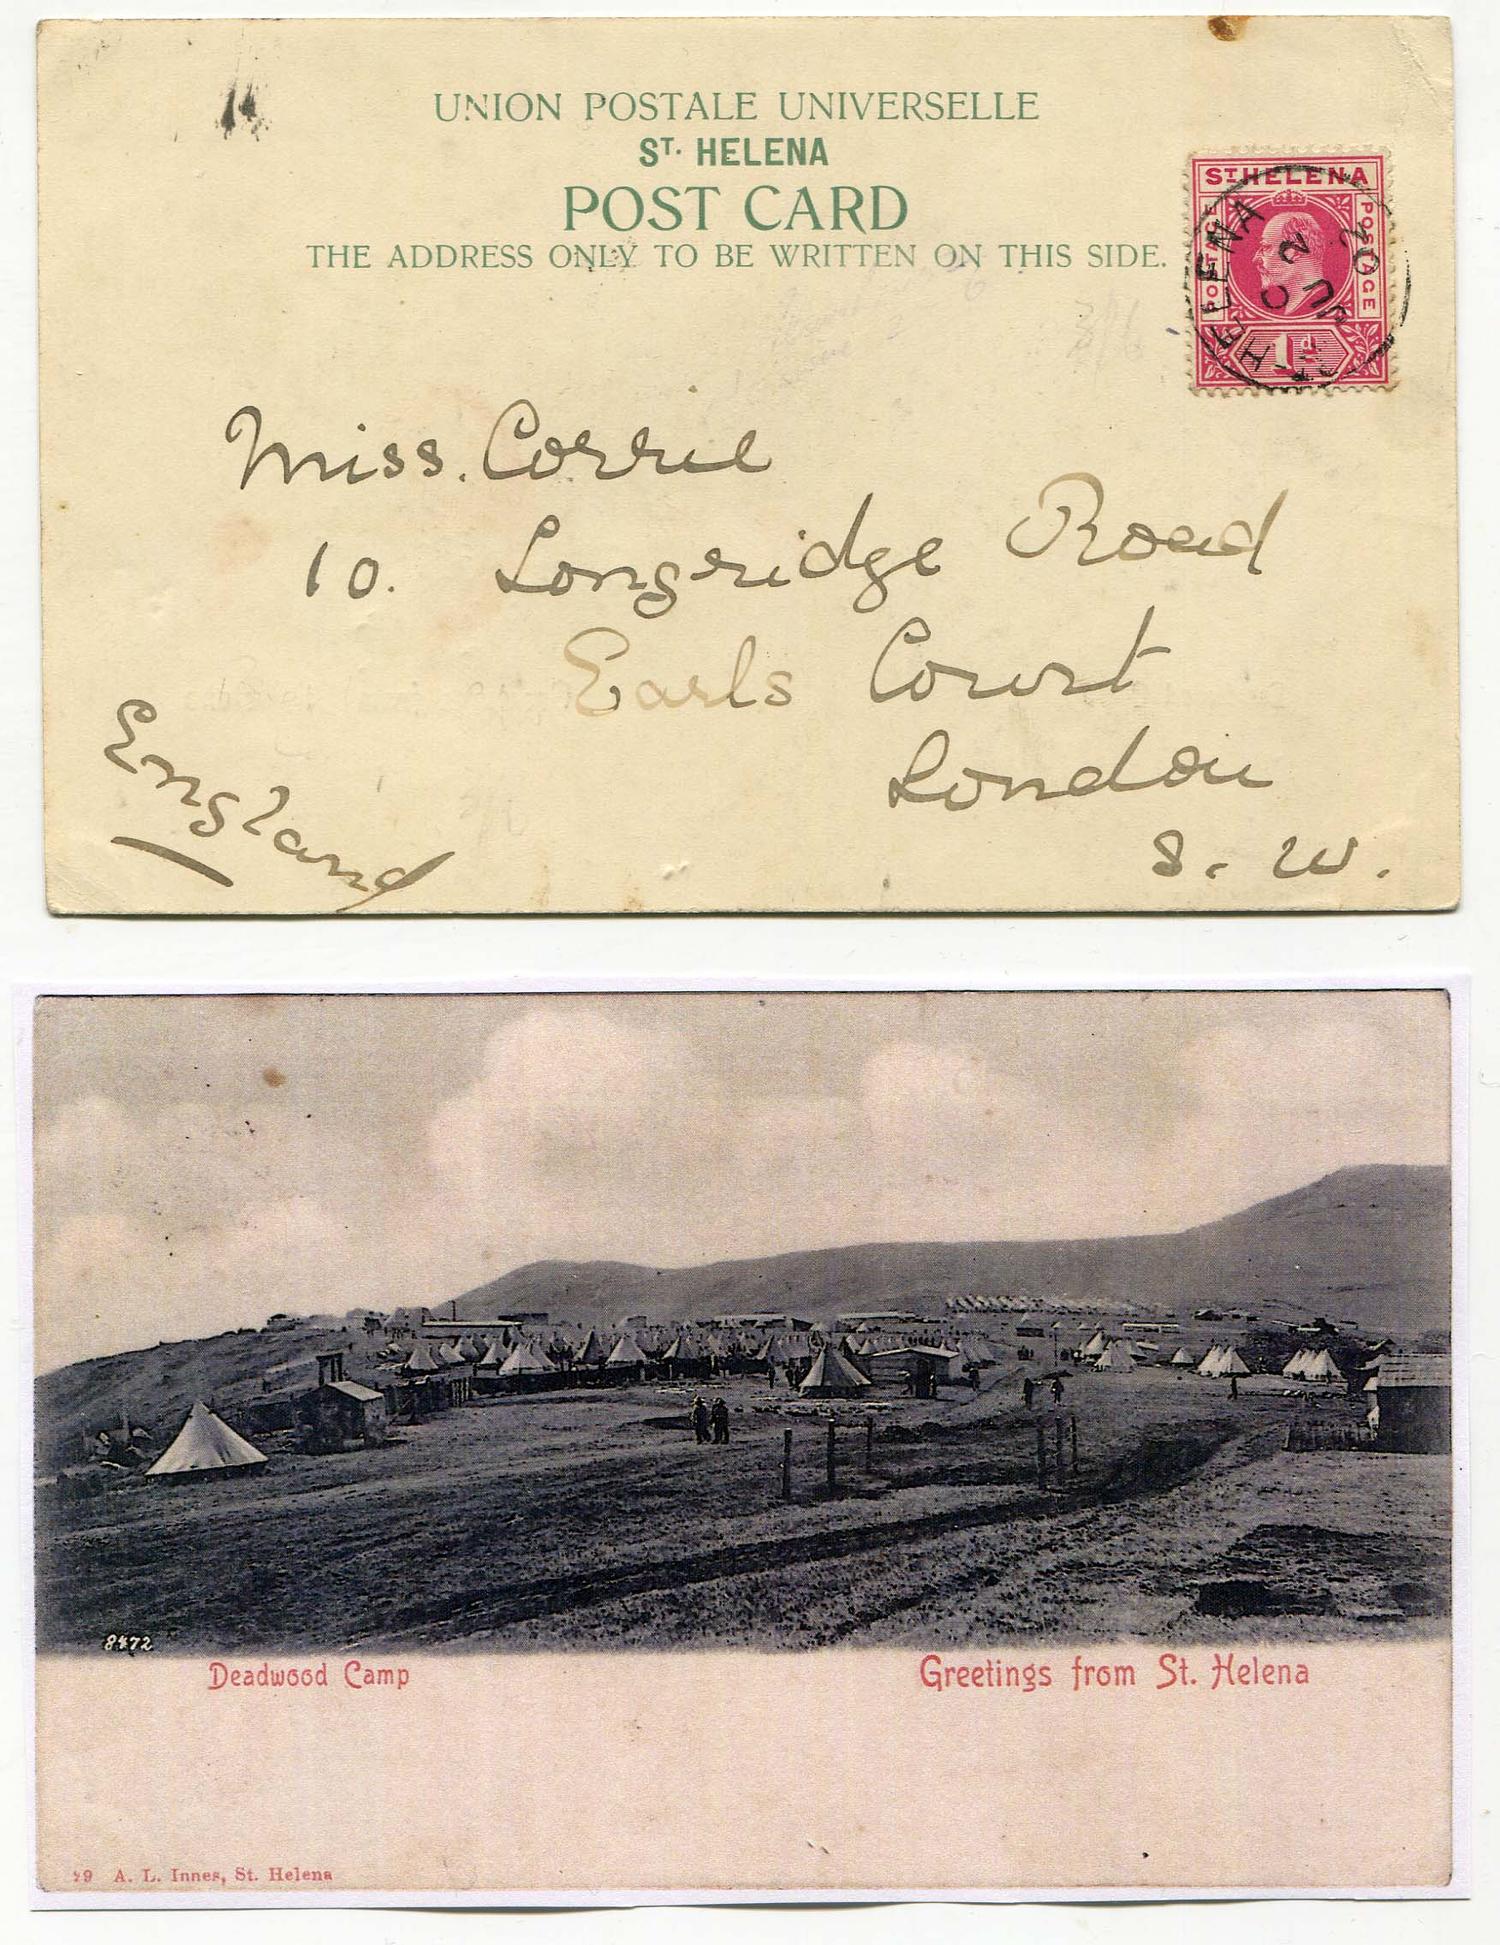 UNION POSTALE UNIVERSELLE
ST. HELENA
POST CARD
THE ADDRESS ONLY TO BE WRITTEN ON THIS SIDE.
ST HELENA
POSTAGE
POSTAGE
1d
HELENA
C
2
JU
20
Miss. Corrie
10. Longridge Road
Earls Court
London
S. W.
England
8472
Deadwood Camp
Greetings from St. Helena
29 A. L. Innes, St. Helena